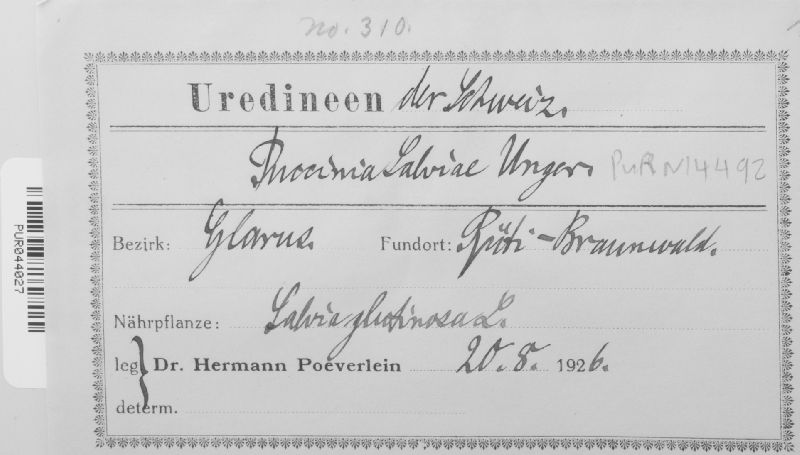 No. 310.
Uredineen der Schweiz.
Puccinia Salviae Unger. PUR N14492
Bezirk: Glarus. Fundort: Rüti-Braunwald.
Nährpflanze: Salvia glutinosa L.
leg. Dr. Hermann Poeverlein 20. 8. 1926.
determ.
PUR044027